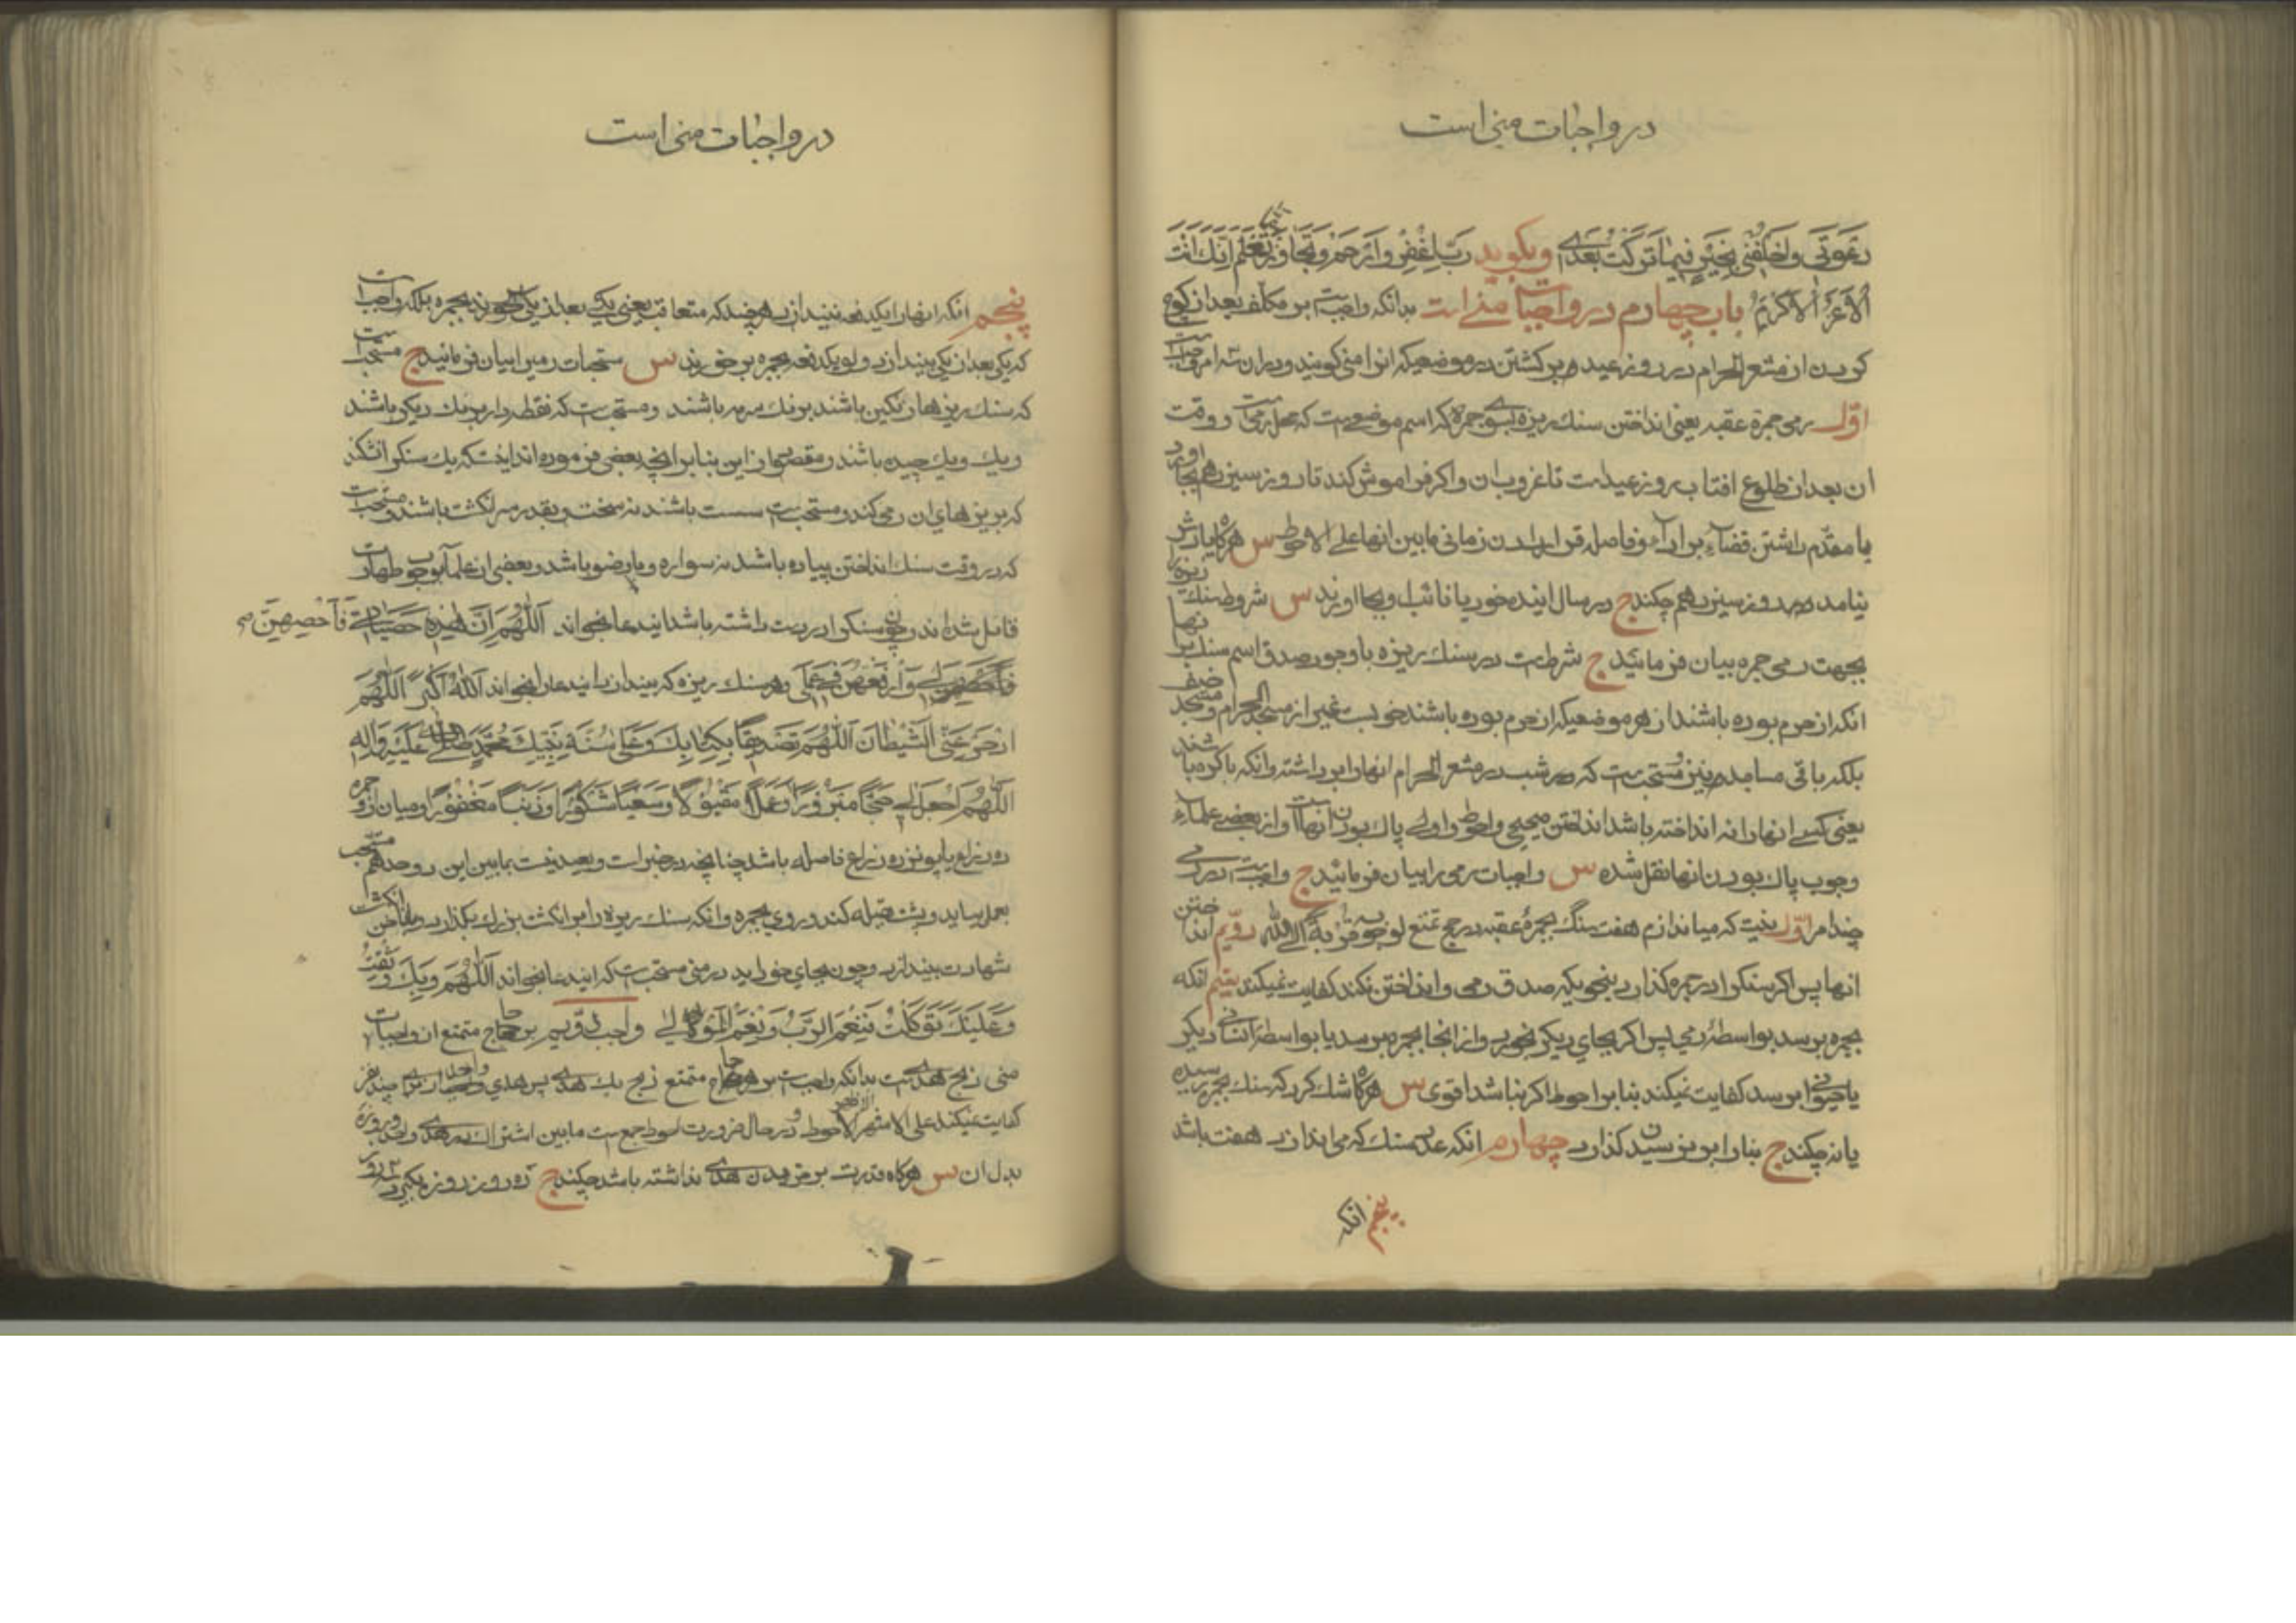 در واجبات منی است
دعوتی واخلفنی بخیر فیما ترکت بعدی وبگوید رب اغفر وارحم وتجاوز عما تعلم انک انت
الاعز الاکرم باب چهارم در واجبات منی است بدانکه واجبست بر مکلف بعد از کوچ
کردن از مشعر الحرام در روز عید بر کشتن در موضعیکه انرا منی کویند ودران سه امر واجبست
اول رمی جمره عقبه یعنی انداختن سنک ریزه بسوی جمره که اسم موضعی است که محل رمیست ووقت
ان بعد از طلوع افتاب روز عید است تا غروب ان واکر فراموش کند تا روز سیزدهم بجا اورد
با مقدم داشتن قضاء بر اداء وفاصله قرار دادن زمانی مابین انها علی الاحوط س هرکاه یادش
نیامد در روز سیزدهم چکند ج در سال اینده خود یا نائب او بجا اورند س شروط سنک ریزه را
بجهت رمی جمره بیان فرمائید ج شرطست در سنک ریزه با وجود صدق اسم سنک بر انها
انکه از حرم بوده باشند از هر موضعیکه از حرم بوده باشند خوبست غیر از مسجد الحرام ومسجد خیف
بلکه باقی مساجد نیز ومستحبست که در شب در مشعر الحرام انها را برداشته وانکه باکره باشند
یعنی کسی انها را نه انداخته باشد انداختن صحیحی واحوط واولی پاک بودن انهاست واز بعضی علماء
وجوب پاک بودن انها نقل شده س واجبات رمی را بیان فرمائید ج واجبست در رمی
چند امر اول نیت که میاندازم هفت سنک بجمره عقبه در حج تمتع لوجوبه قربة الی الله دویم انداختن
انها پس اکر سنک را در جمره کذارد بنحوی که صدق رمی وانداختن نکند کفایت نمیکند سیم انکه
بجمره برسد بواسطه رمی پس اکر بجای دیکر بخورد واز انجا بجمره برسد یا بواسطه انسانی دیکر
یا حیوانی برسد کفایت نمیکند بنا بر احوط اکر نباشد اقوی س هرکاه شک کرد که سنک بجمره رسیده
یا نه چکند ج بنا را بر نرسیدن کذارد چهارم انکه عدد سنک که می اندازد هفت باشد
پنجم انکه
در واجبات منی است
پنجم انکه انها را یکدفعه نیندازد هر چند که متعاقب یعنی یکی بعد از یکی بخورند بجمره بلکه واجبست
که یکی بعد از یکی بیندازد ولو یکدفعه بجمره بر خورند س مستحبات رمی را بیان فرمائید ج مستحبست
که سنک ریزها رنکین باشند برنک سرمه باشند ومستحبست که نقطه دار برنک دیکر باشند
که بریزهای ان رمی کند ومستحبست سست باشند نه سخت وبقدر سر انکشت باشند ومستحبست
که در وقت سنک انداختن پیاده باشد نه سواره وبا وضو باشد وبعضی از علما بوجوب طهارت
قائل شده اند وچون سنک را در دست داشته باشد ایندعا بخواند اللهم ان هذه حصیاتی فاحصهن
لی وارفعهن فی عملی وهر سنک ریزه که بیندازد ایندعا را بخواند الله اکبر اللهم
ادحر عنی الشیطان اللهم تصدیقا بکتابک وعلی سنة نبیک محمد صلی الله علیه واله
اللهم اجعله لی حجا مبرورا وعملا مقبولا وسعیا مشکورا وذنبا مغفورا ومیان او وجمره
ده ذراع یا پونزده ذراع فاصله باشد چنانچه در خبر است وبعید نیست مابین این دو حد هم مستحب
بعمل بیاید وپشت بقبله کند وروی بجمره وانکه سنک ریزه را بر انکشت بزرک بکذارد وبناخن انکشت
شهادت بیندازد وچون بجای خود اید در منی مستحبست که ایندعا بخواند اللهم وبک وثقت
وعلیک توکلت فنعم الرب ونعم المولی واجب دویم بر حاج متمتع از واجبات
منی ذبح هدیست بدانکه واجبست بر هر حاج متمتع ذبح یک هدی پس هدی واحد از برای چند نفر
کفایت نمیکند علی الاشهر الاحوط ودر حال ضرورت احوط جمعست مابین اشتراک در هدی واحد وروزه
بدل ان س هرکاه قدرت بر خریدن هدی نداشته باشد چکند ج ده روز روزه بکیرد سه روز